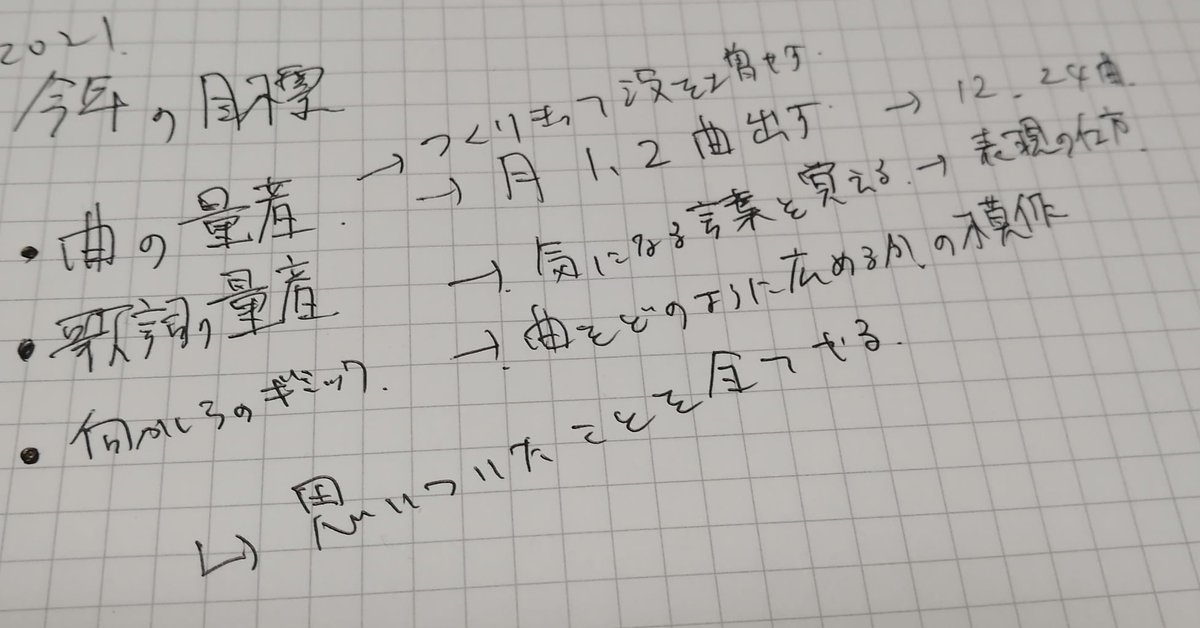 2021.
今年の目標
・曲の量産. → つくりまくって没を増やす.
→ 月1、2曲出す → 12、24曲.
・歌詞の量産 → 気になる言葉を覚える. → 表現の仕方
・何かしらのギミック. → 曲をどのように広めるかの模作
↳ 思いついたことを片っぱ